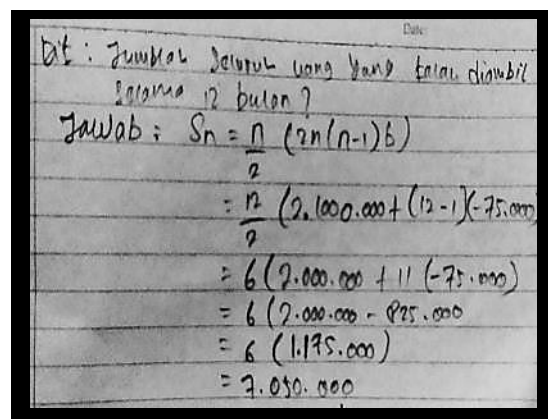 Date:
Dit : Jumlah seluruh uang yang telah diambil
selama 12 bulan ?
Jawab : Sn = n/2 (2n(n-1)b)
= 12/2 (2.1000.000 + (12-1)(-75.000)
= 6 (2.000.000 + 11 (-75.000)
= 6 (2.000.000 - 825.000
= 6 (1.175.000)
= 7.050.000